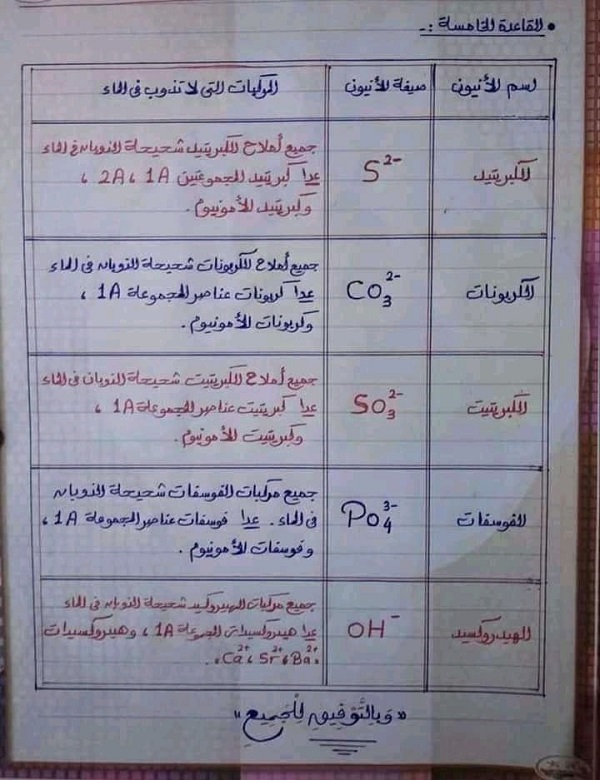 • القاعدة الخامسة :-
اسم الأنيون | صيغة الأنيون | المركبات التي لا تذوب في الماء
الكبريتيد | S²⁻ | جميع أملاح الكبريتيد شحيحة الذوبان في الماء
عدا كبريتيد المجموعتين 1A ، 2A ،
وكبريتيد الأمونيوم .
الكربونات | CO₃²⁻ | جميع أملاح الكربونات شحيحة الذوبان في الماء
عدا كربونات عناصر المجموعة 1A ،
وكربونات الأمونيوم .
الكبريتيت | SO₃²⁻ | جميع أملاح الكبريتيت شحيحة الذوبان في الماء
عدا كبريتيت عناصر المجموعة 1A ،
وكبريتيت الأمونيوم .
الفوسفات | PO₄³⁻ | جميع مركبات الفوسفات شحيحة الذوبان
في الماء . عدا فوسفات عناصر المجموعة 1A ،
وفوسفات الأمونيوم .
الهيدروكسيد | OH⁻ | جميع مركبات الهيدروكسيد شحيحة الذوبان في الماء
عدا هيدروكسيدات المجموعة 1A ، وهيدروكسيدات
Ba²⁺ ، Sr²⁺ ، Ca²⁺ .
« وَبِالتَّوْفِيقِ لِلْجَمِيعِ »